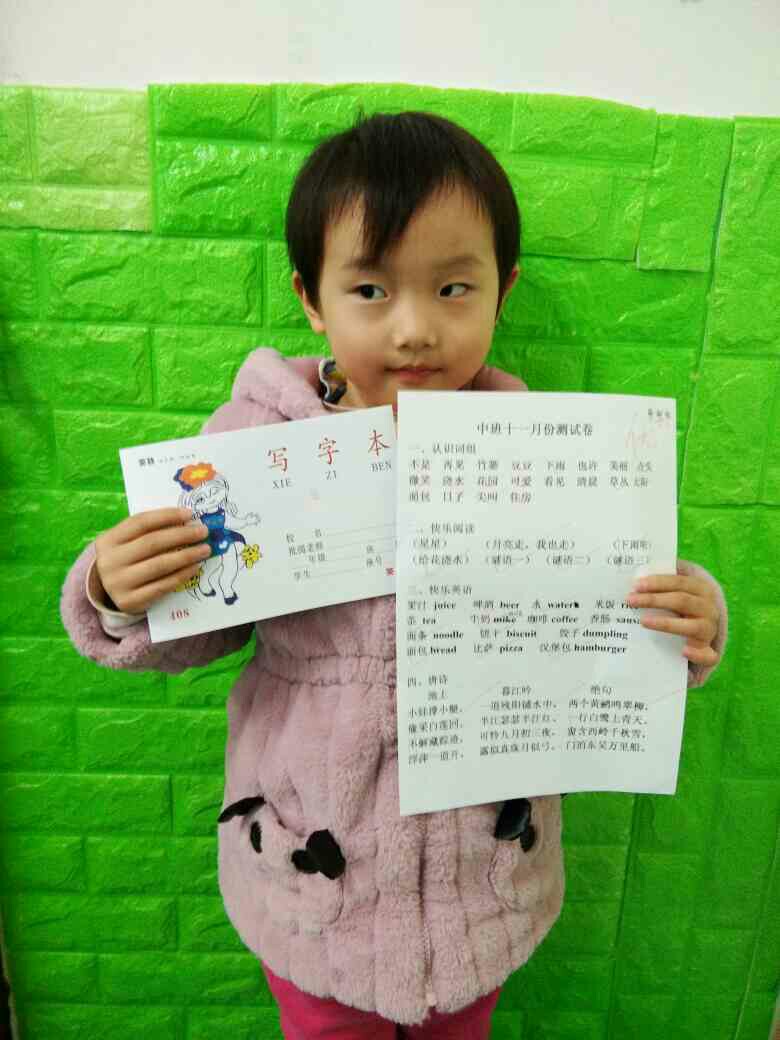 写字本
XIE ZI BEN
校 名
批阅老师
年级 班
学生 座号
408
中班十一月份测试卷
一、认识词组
不是 再见 竹篱 豆豆 下雨 也许 美丽
微笑 浇水 花园 可爱 看见 清晨 草丛
面包 日子 尖叫 住房
二、快乐阅读
(星星) (月亮走,我也走) (下雨啦
(给花浇水) (谜语一) (谜语二) (谜语三)
三、快乐英语
果汁 joice 啤酒 beer 水 water 米饭 rice
茶 tea 牛奶 mike 咖啡 coffee 香肠 saus
面条 noodle 饼干 biscuit 饺子 dumpling
面包 bread 比萨 pizza 汉堡包 hamburger
四、唐诗
池上 暮江吟 绝句
小娃撑小艇, 一道残阳铺水中, 两个黄鹂鸣翠柳,
偷采白莲回。 半江瑟瑟半江红。 一行白鹭上青天。
不解藏踪迹, 可怜九月初三夜, 窗含西岭千秋雪,
浮萍一道开。 露似真珠月似弓。 门泊东吴万里船。